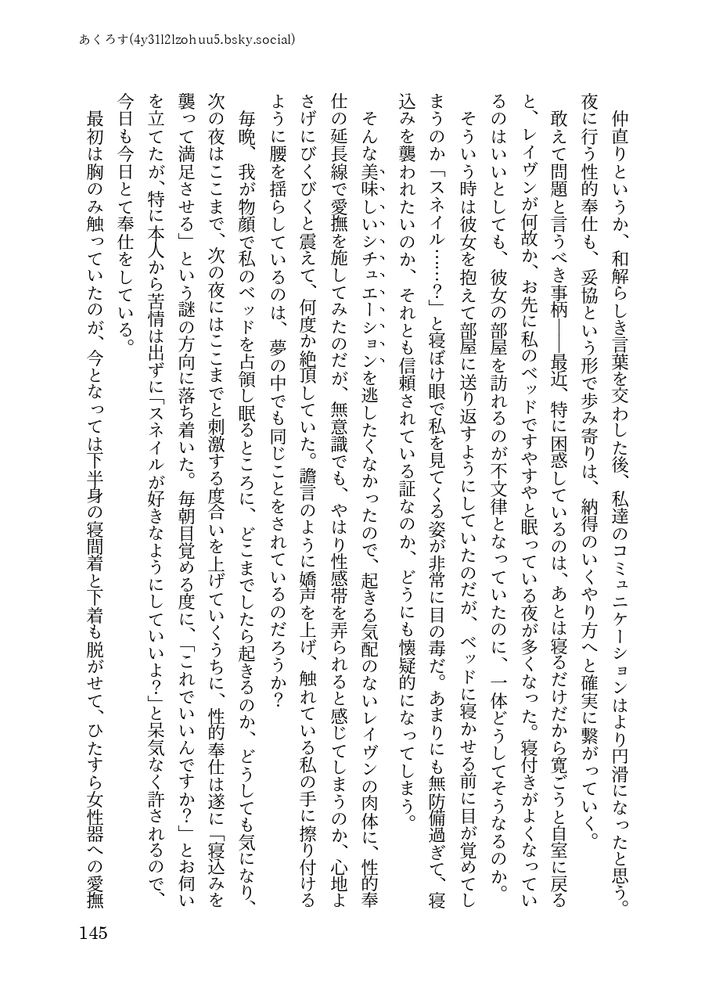 あくろす(4y31l2lzohuu5.bsky.social)
仲直りというか、和解らしき言葉を交わした後、私達のコミュニケーションはより円滑になったと思う。
夜に行う性的奉仕も、妥協という形で歩み寄りは、納得のいくやり方へと確実に繋がっていく。
敢えて問題と言うべき事柄――最近、特に困惑しているのは、あとは寝るだけだから寛ごうと自室に戻る
と、レイヴンが何故か、お先に私のベッドですやすやと眠っている夜が多くなった。寝付きがよくなってい
るのはいいとしても、彼女の部屋を訪れるのが不文律となっていたのに、一体どうしてそうなるのか。
そういう時は彼女を抱えて部屋に送り返すようにしていたのだが、ベッドに寝かせる前に目が覚めてし
まうのか「スネイル……？」と寝ぼけ眼で私を見てくる姿が非常に目の毒だ。あまりにも無防備過ぎて、寝
込みを襲われたいのか、それとも信頼されている証なのか、どうにも懐疑的になってしまう。
そんな美味しいシチュエーションを逃したくなかったので、起きる気配のないレイヴンの肉体に、性的奉
仕の延長線で愛撫を施してみたのだが、無意識でも、やはり性感帯を弄られると感じてしまうのか、心地よ
さげにびくびくと震えて、何度か絶頂していた。譫言のように嬌声を上げ、触れている私の手に擦り付ける
ように腰を揺らしているのは、夢の中でも同じことをされているのだろうか？
毎晩、我が物顔で私のベッドを占領し眠るところに、どこまでしたら起きるのか、どうしても気になり、
次の夜はここまで、次の夜にはここまでと刺激する度合いを上げていくうちに、性的奉仕は遂に「寝込みを
襲って満足させる」という謎の方向に落ち着いた。毎朝目覚める度に、「これでいいんですか？」とお伺い
を立てたが、特に本人から苦情は出ずに「スネイルが好きなようにしていいよ？」と呆気なく許されるので、
今日も今日とて奉仕をしている。
最初は胸のみ触っていたのが、今となっては下半身の寝間着と下着も脱がせて、ひたすら女性器への愛撫
145